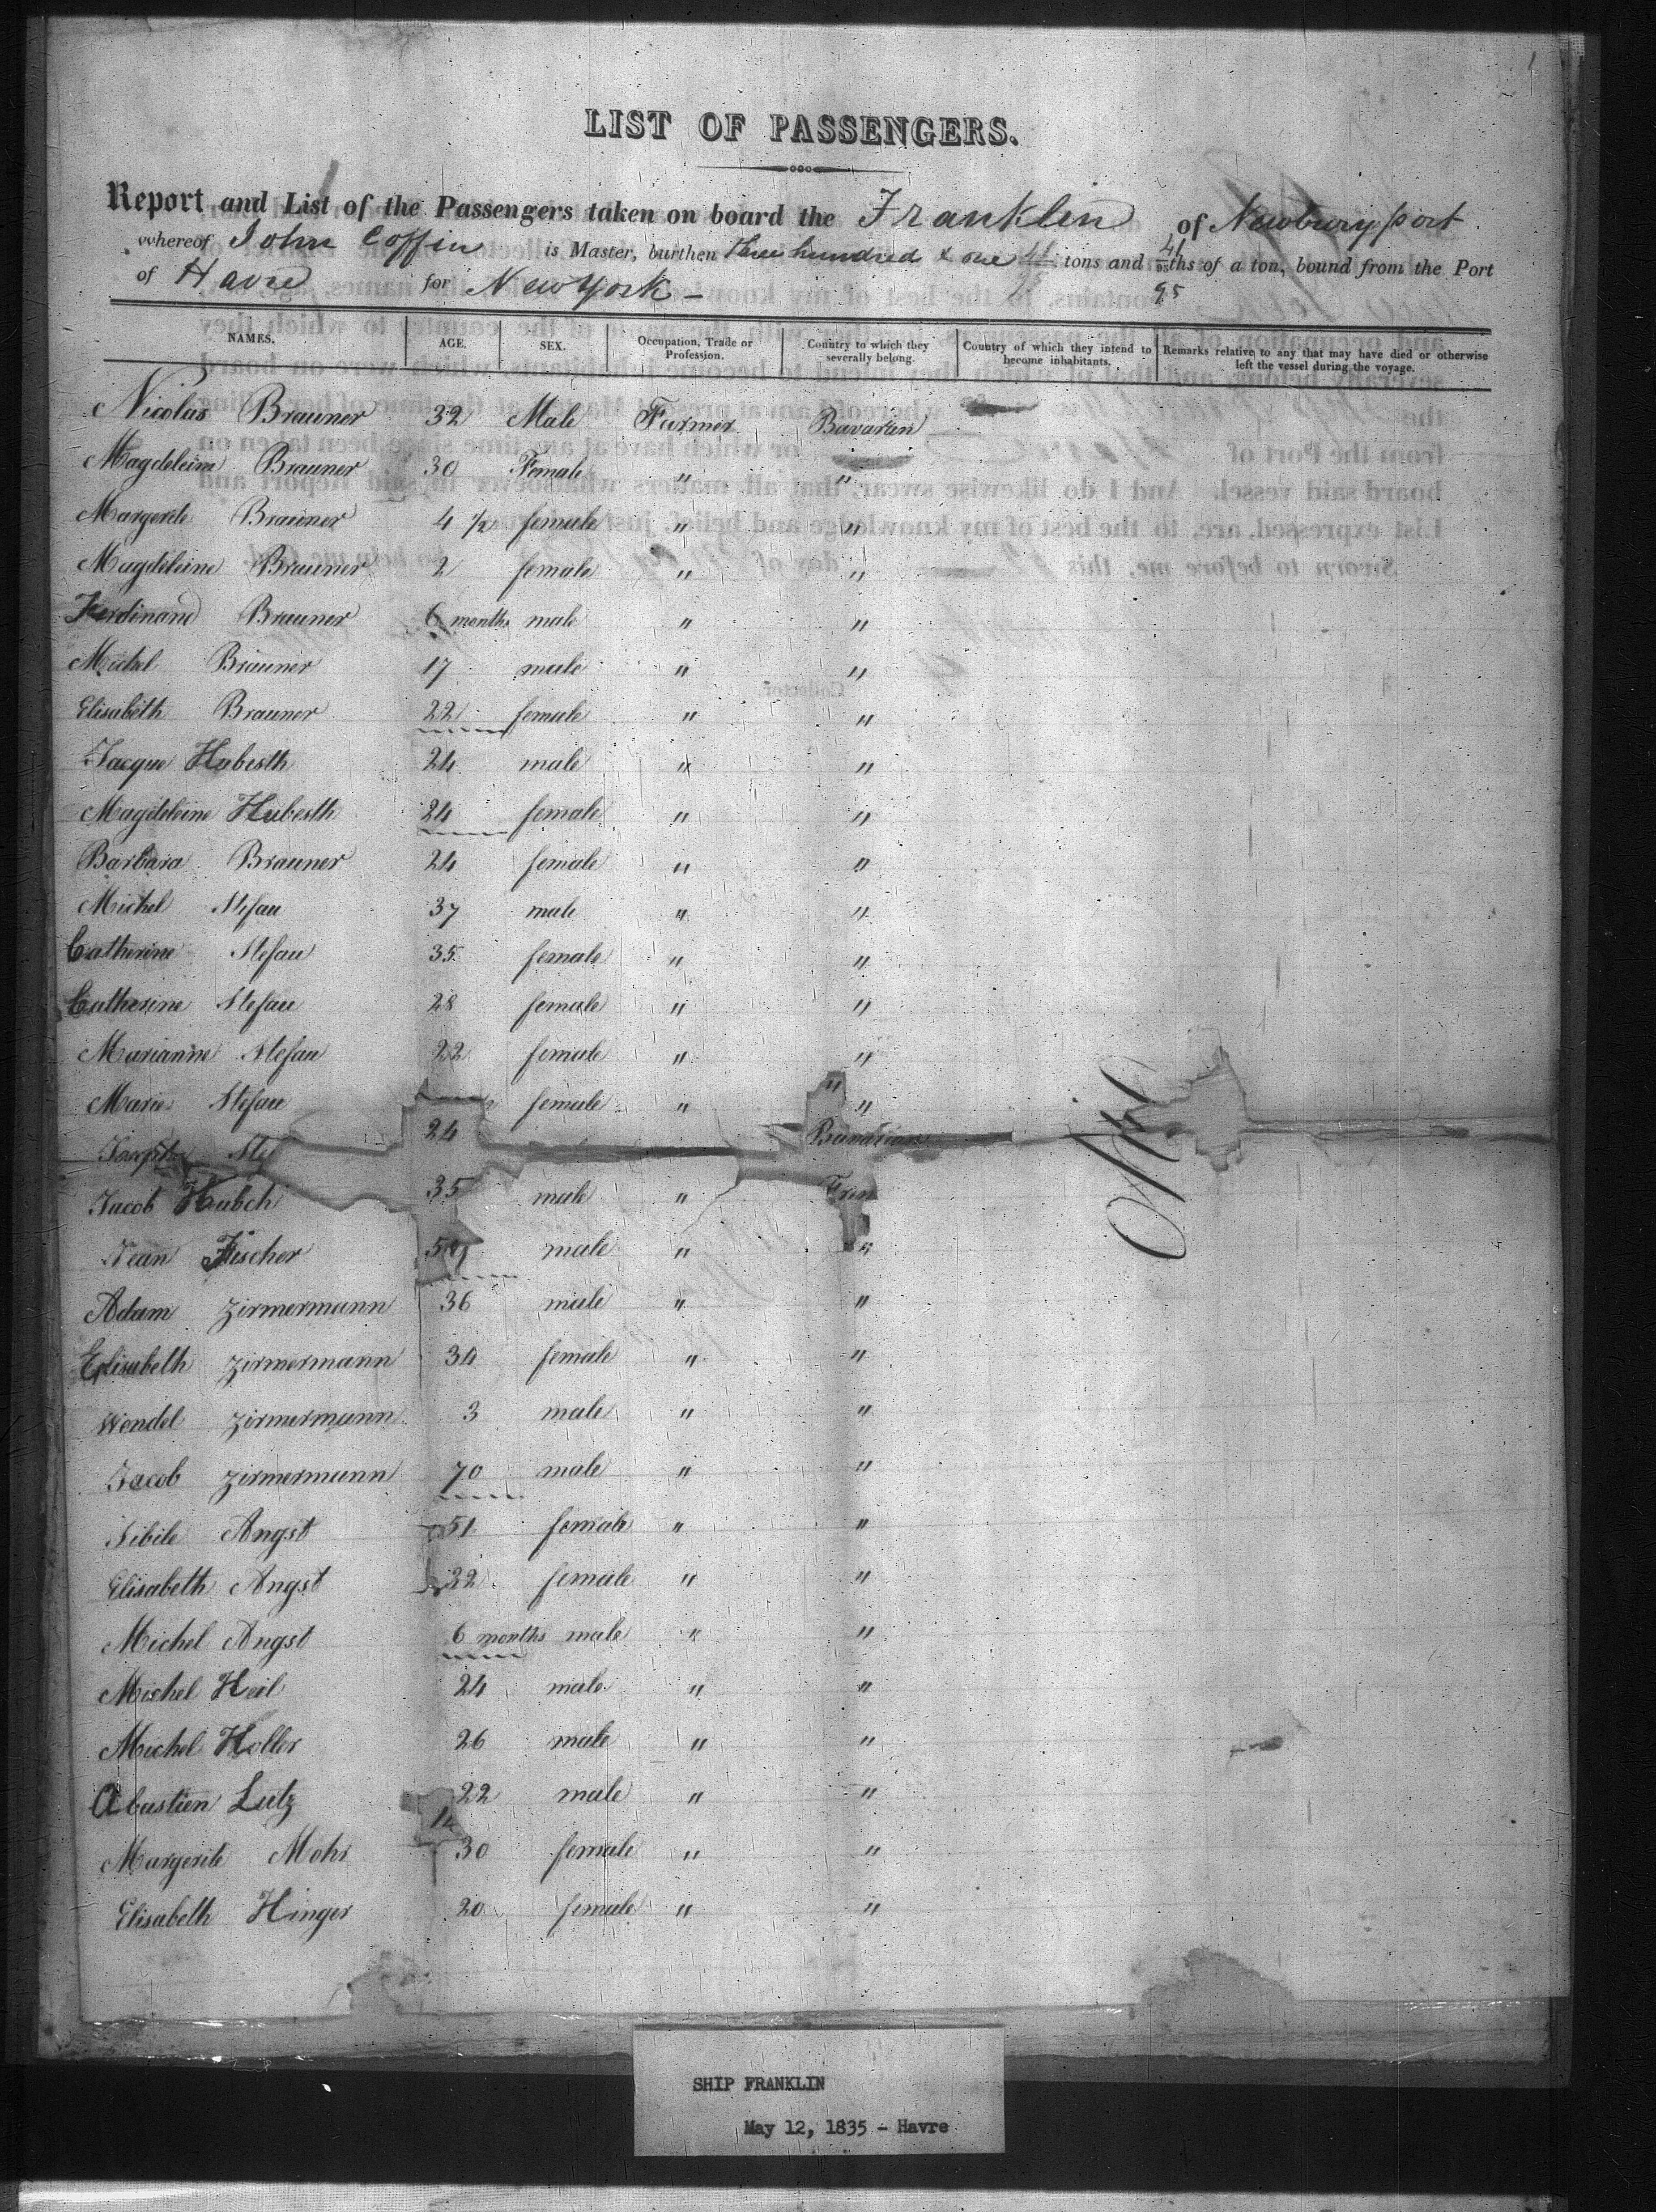 LIST OF PASSENGERS.
Report and List of the Passengers taken on board the Franklin of Newburyport
whereof John Coffin is Master, burthen three hundred & one 41 tons and 41/95 ths of a ton, bound from the Port
of Havre for New York –
NAMES. AGE. SEX. Occupation, Trade or Profession. Country to which they severally belong. Country of which they intend to become inhabitants. Remarks relative to any that may have died or otherwise left the vessel during the voyage.
Nicolas Brauner 32 Male Farmer Bavarien
Magdeleine Brauner 30 Female " "
Margerite Brauner 4 1/2 female " "
Magdeleine Brauner 2 female " "
Ferdinand Brauner 6 months male " "
Michel Brauner 17 male " "
Elisabeth Brauner 22 female " "
Jacque Hubesth 24 male " "
Magdeleine Hubesth 24 female " "
Barbara Brauner 24 female " "
Michel Stefau 37 male " "
Catherine Stefau 35 female " "
Catherine Stefau 28 female " "
Marianne Stefau 22 female " "
Marie Stefau female " "
Joseph Ste
24
Jacob Hubch 35 male "
Jean Fischer male " "
Adam Zirmermann 36 male " "
Elisabeth Zirmermann 34 female " "
Wendel Zirmermann 3 male " "
Jacob Zirmermann 70 male " "
Sibile Angst 51 female " "
Elisabeth Angst 32 female " "
Michel Angst 6 months male " "
Michel Heil 24 male " "
Michel Holler 26 male " "
Lutz 22 male " "
Margerite Mohr 30 female " "
Elisabeth Hinger 20 female " "
SHIP FRANKLIN
May 12, 1835 - Havre